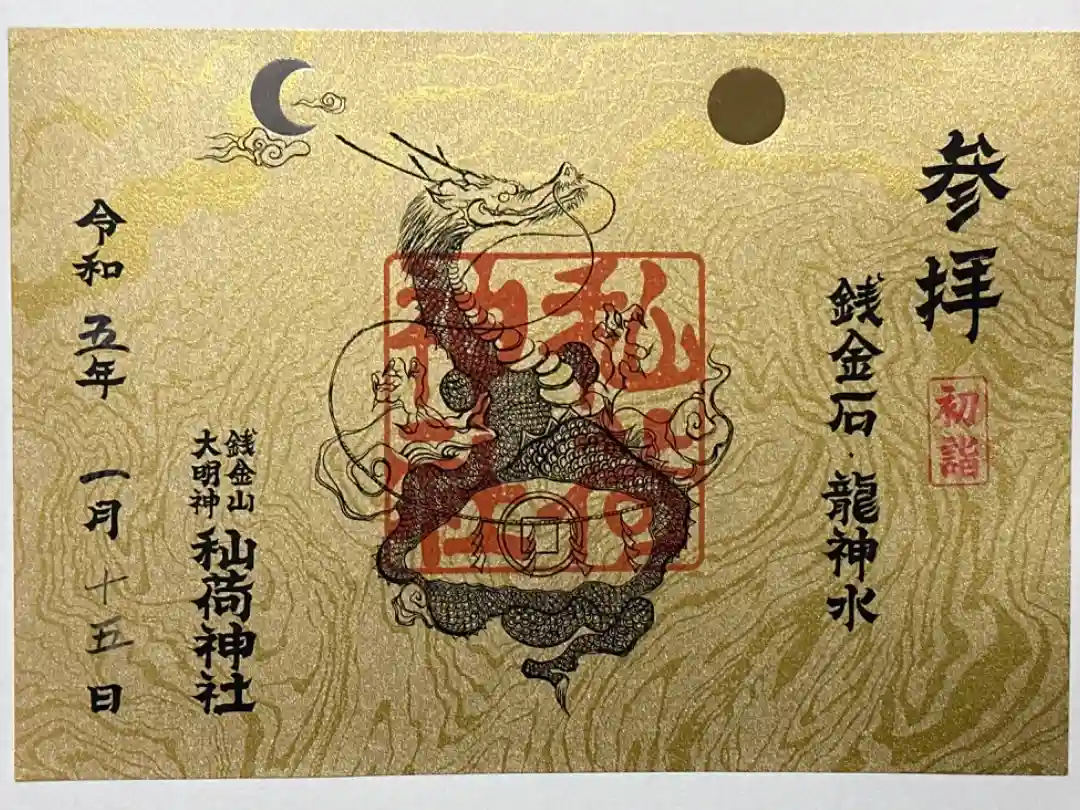 参拝
初詣
銭金石・龍神水
秈荷
神社
銭金山
大明神
秈荷神社
令和五年一月十五日